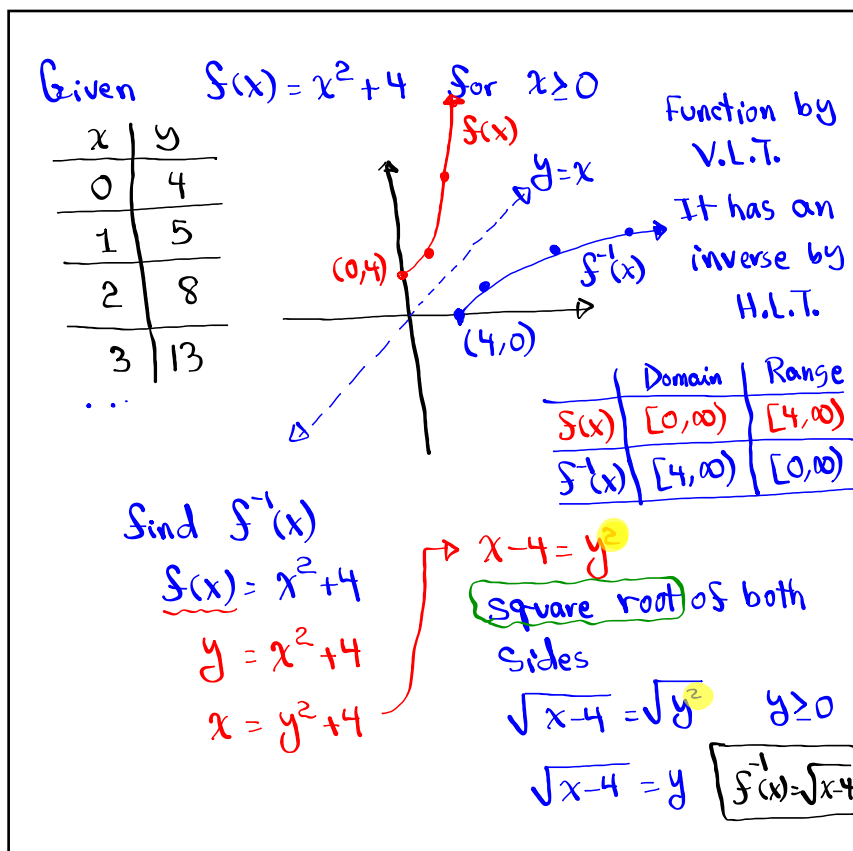 Given f(x) = x² + 4 for x ≥ 0
x y
0 4
1 5
2 8
3 13
...
f(x)
y = x
(0,4)
f⁻¹(x)
(4,0)
Function by
V.L.T.
It has an
inverse by
H.L.T.
Domain Range
f(x) [0,∞) [4,∞)
f⁻¹(x) [4,∞) [0,∞)
find f⁻¹(x)
f(x) = x² + 4
y = x² + 4
x = y² + 4
x - 4 = y²
square root of both
sides
√(x-4) = √(y²) y ≥ 0
√(x-4) = y
f⁻¹(x) = √(x-4)